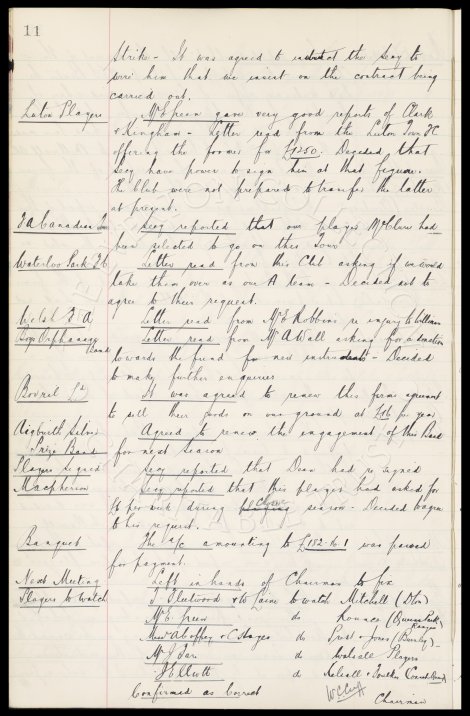 11
Strike - It was agreed to instruct the Secy to
wire him that we insist on the contract being
carried out.
Luton Players Mr Green gave very good reports of Clark
& Kingham - Letter read from the Luton Town F.C.
offering the former for £1250. Decided that
Secy have power to sign him at that figure.
The Club were not prepared to transfer the latter
at present.
F A Canadian Tour Secy reported that our player McClure had
been selected to go on this Tour
Waterloo Park F.C. Letter read from this Club asking if we would
take them over as our A team - Decided not to
agree to their request.
Welsh F. A Letter read from Mr E Robbins re injury to Williams
Boys Orphanage Band Letter read from Mr A Wall asking for a donation
towards the fund for new instruments - Decided
to make further enquiries
Bovril Ld It was agreed to renew this firms agreement
to sell their goods on our ground at for year
Aigburth Silver Prize Band Agreed to renew the engagement of this Band
for next Season
Players Signed Secy reported that Dean had re signed
Macpherson Secy reported that this player had asked for
per week during close season - Decided to agree
to his request.
Banquet The a/c amounting to £152.16.1 was passed
for payment.
Next Meeting Left in hands of Chairman to fix
Players to Watch Fleetwood & to watch Mitchell
Mr E Green do Rounce (Queens Park Rangers)
Messrs A Coffey & C Hayes do Prest & Jones (Burnley)
Mr do Walsall Players
J Elliott do
Confirmed as Correct
W C Cuff
Chairman